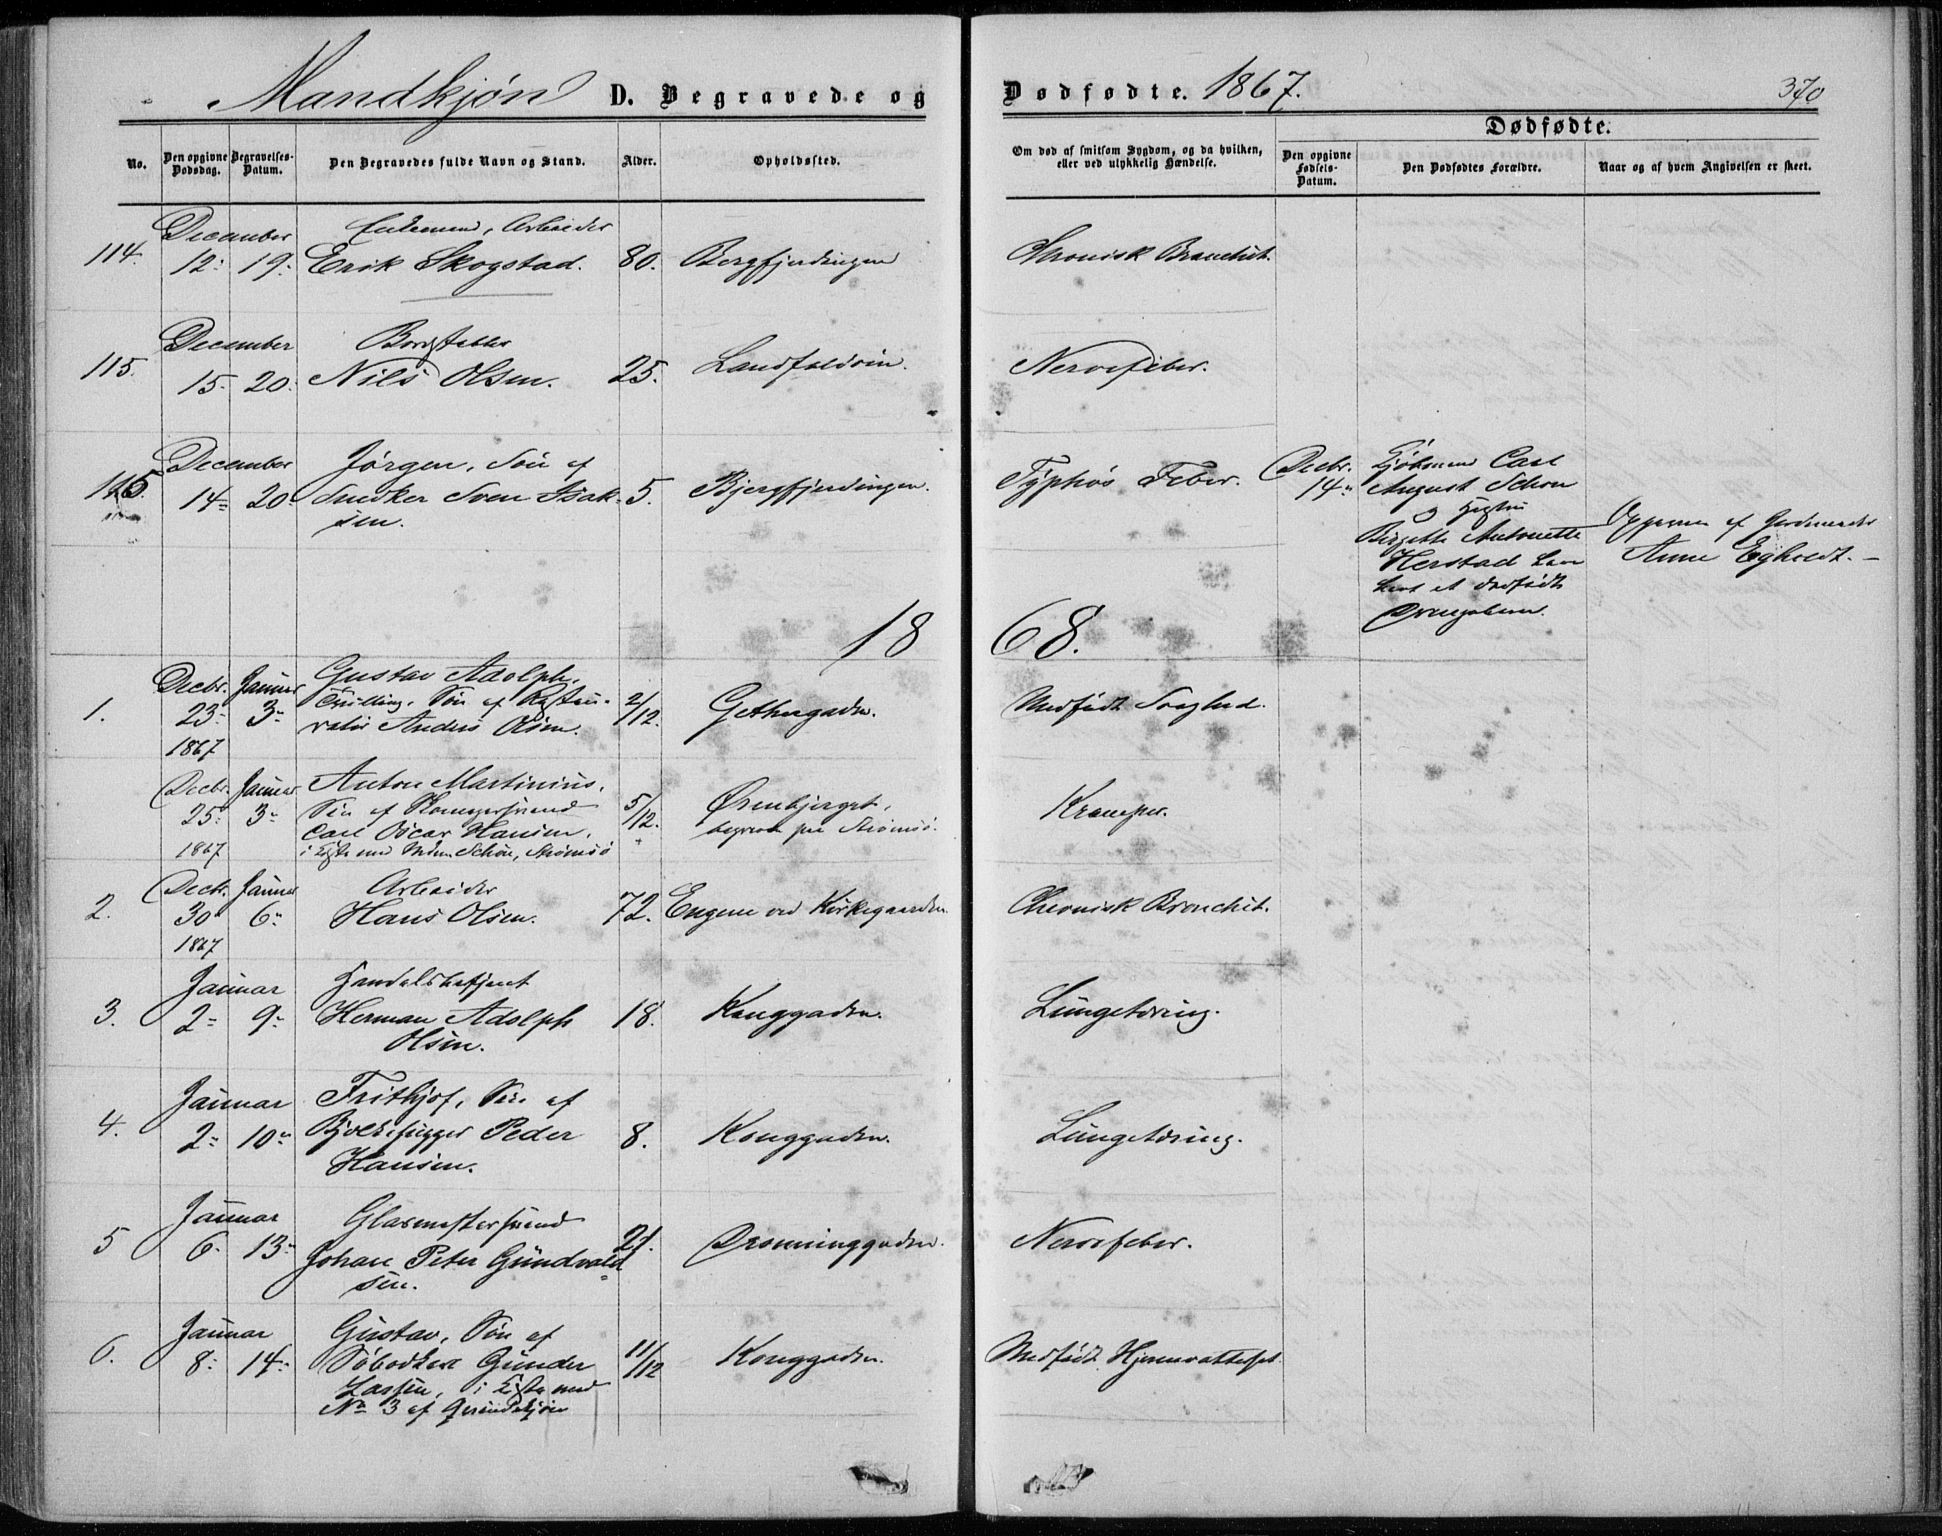 Mandkjøn D. Begravede og Dødfødte. 1867. 370
Dødfødte.
No. Den opgivne Dødsdag. Begravelses-Datum. Den Begravedes fulde Navn og Stand. Alder. Opholdssted. Om død af smitsom Sygdom, og da hvilken, eller ved ulykkelig Hændelse. Den opgivne Fødsels-Datum. Den Dødfødtes Forældre. Naar og af hvem Angivelsen er skeet.
December Enkemand, Arbeider
114. 12 19 Erik Skogstad. 80. Bergfjerdingen Chronisk Bronchit.
December Borgstabler
115. 15 20 Nils Olsen. 25. Landfaldøien. Nervefeber.
December Jørgen, Søn af
14 20 Snedker Sven Isak- 5. Bjergfjerdingen. Typhøs Feber.
sen.
Decbr. 14 Kjøbmand Carl
August Schou
og Hustru
Birgette Antonette
Herstad
et dødfødt
Drengebarn.
Opgiven af Gordmoder
Anne Egholdt.
1868.
Decbr. Januar Gustav Adolph,
1. 23 3 Tvilling, Søn af Restau-
ratør Anders Olsen. 2/12. Gethergaden. Medfødt Svaghed.
1867
Decbr. Januar Anton Martinius,
25 3 Søn af
Carl Oscar Hansen, 5/12. Ørenbjerget, Kramper.
begravet paa Strømsø.
1867 i Kiste med Schou, Strømsø
Decbr. Januar Arbeider
2. 30 6 Hans Olsen. 72. Engene ved Kirkegaarden Chronisk Bronchit.
1867
Januar Handelsbetjent
3. 2 9 Herman Adolph 18. Konggaden. Lungetæring.
Olsen.
Januar Frithjof, Søn af
4. 2 10 Bjelkehugger Peder 8. Konggaden. Lungetæring.
Hansen.
Januar Glasmestersvend
5 6 13 Johan Peter Gundvald 21. Dronninggaden. Nervefeber.
sen.
Januar Gustav, Søn af
6. 8 14 Gunder 11/12 Konggaden. Medfødt Hjernevattersot.
Lassen, i Kiste med
No 3 af Qvindekjøn